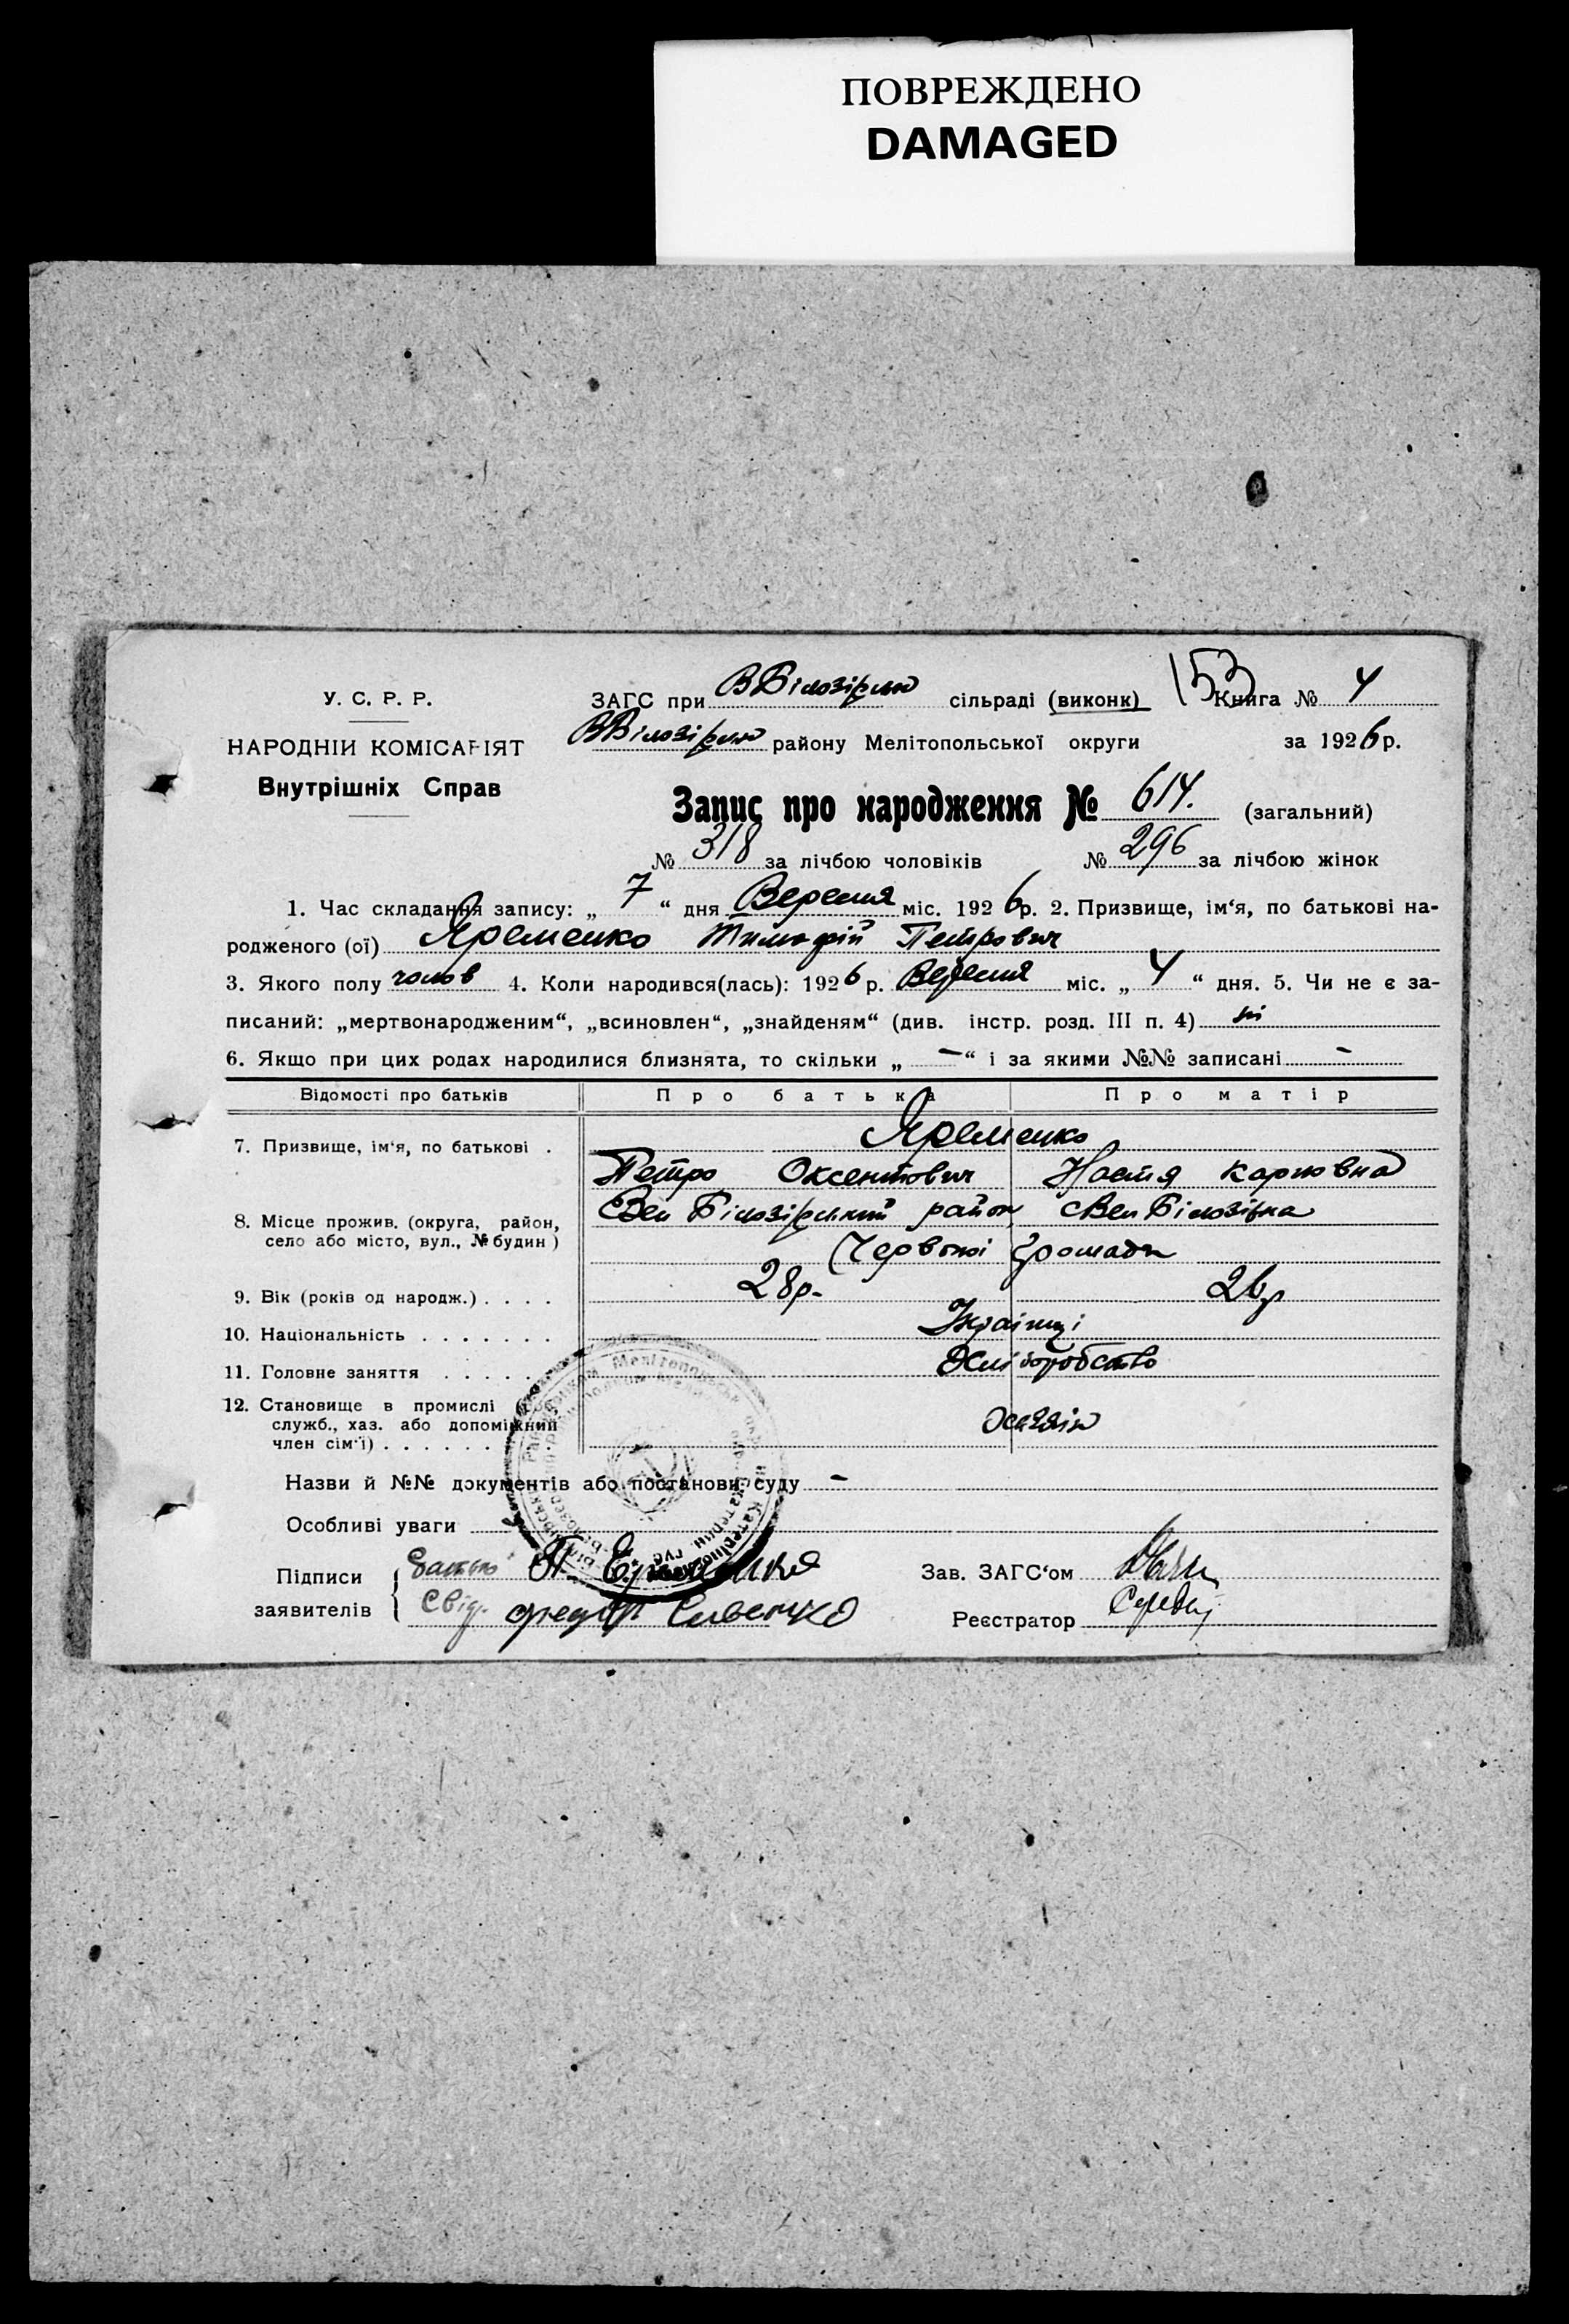 ПОВРЕЖДЕНО
DAMAGED
У. С. Р. Р.
НАРОДНІЙ КОМІСАРІЯТ
Внутрішніх Справ
ЗАГС при ВБілозірськ сільраді (виконк) 153 Книга № 4
ВБілозірськ району Мелітопольської округи за 1926 р.
Запис про народження № 614. (загальний)
№ 318 за лічбою чоловіків № 296 за лічбою жінок
1. Час складання запису: „ 7 “ дня Вересня міс. 1926 р. 2. Призвище, ім‘я, по батькові на-
родженого (ої) Яременко Тимофій Петрович
3. Якого полу чолов 4. Коли народився(лась): 1926 р. Вересня міс. „ 4 “ дня. 5. Чи не є за-
писаний: „мертвонародженим“, „всиновлен“, „знайденям“ (див. інстр. розд. III п. 4) ні
6. Якщо при цих родах народилися близнята, то скільки „ — “ і за якими №№ записані -
Відомості про батьків Про батька Про матір
7. Призвище, ім‘я, по батькові . Яременко
Петро Оксентович Настя Карповна
8. Місце прожив. (округа, район,
село або місто, вул., № будин )
Вел Білозірський район, с Вел Білозірка
Червоної Громади
9. Вік (років од народж.) . . . . 28р. 26р
10. Національність . . . . . . . Українці
11. Головне заняття . . . . . Хліборобство
12. Становище в промислі
служб., хаз. або допоміжний
член сім‘ї) . . . . . .
Назви й №№ документів або постанови суду -
Особливі уваги
Підписи
заявителів
батько П. Ерьоменко
Свід. Федор
Зав. ЗАГС‘ом
Реєстратор